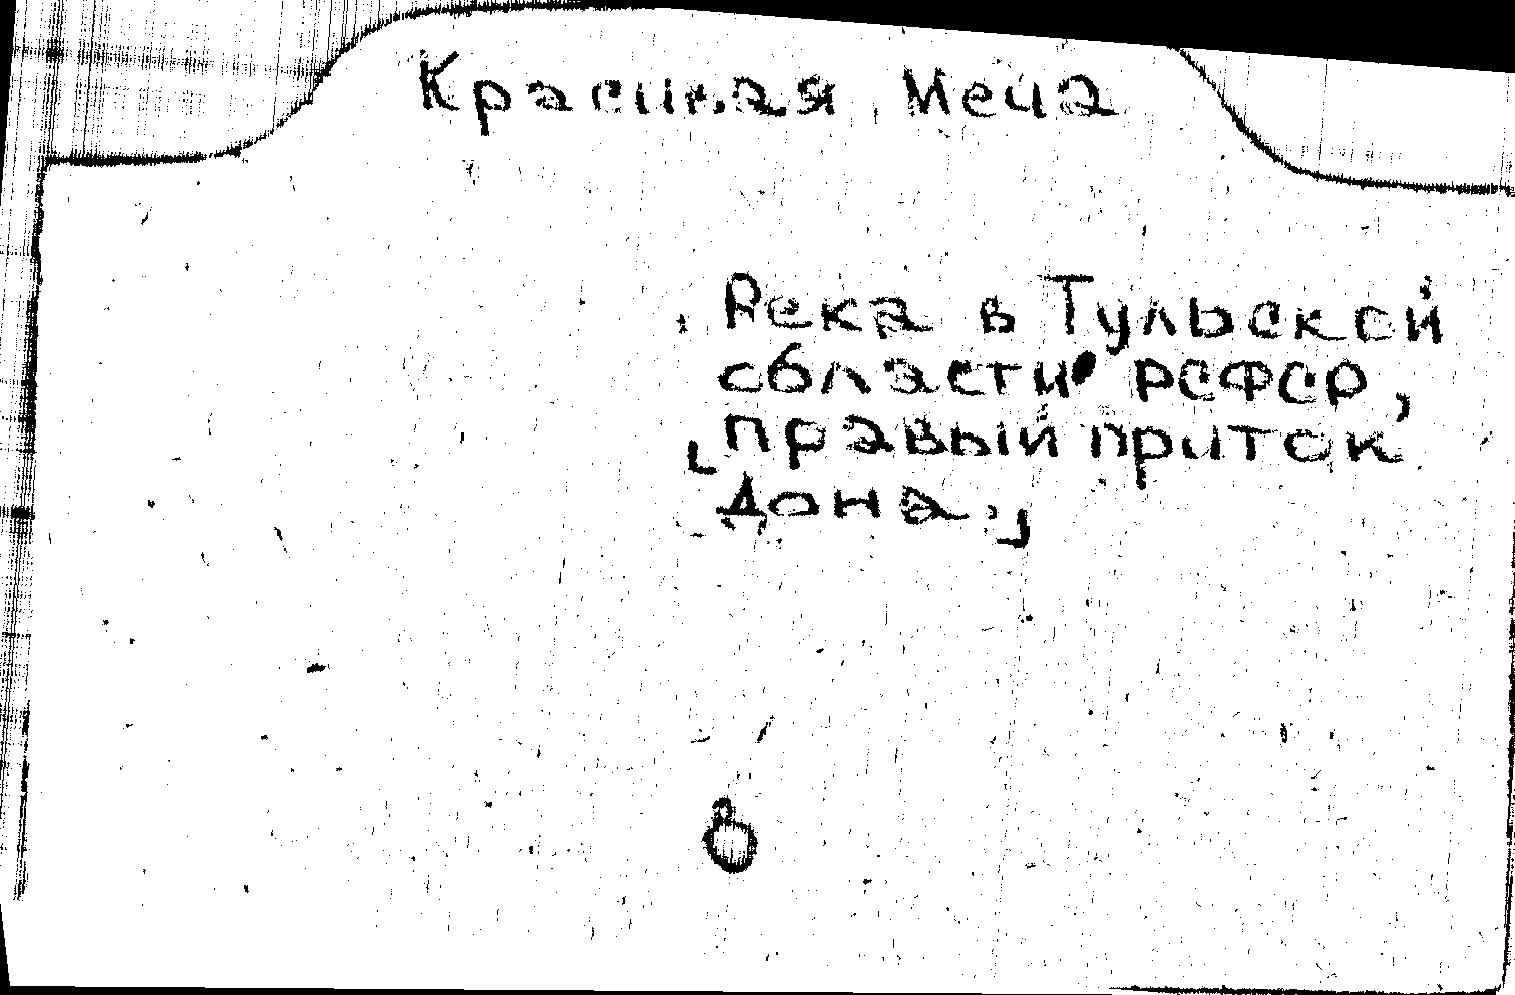 Красивая Меча
Река в Тульской
области РСФСР,
правый приток
Дона.